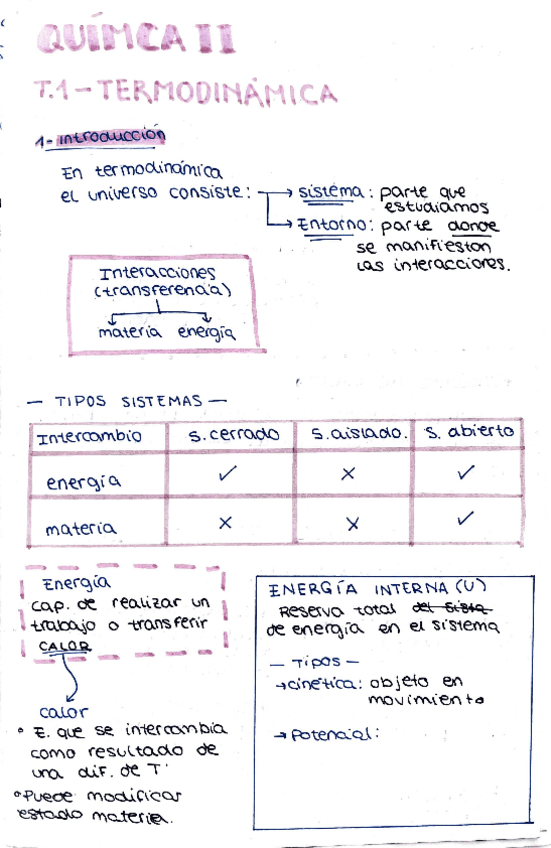 QUÍMCA II
T.1 - TERMODINÁMICA
1- introducción
En termodinámica
el universo consiste: → sistema: parte que
estudiamos
→ Entorno: parte donde
se manifiestan
las interacciones.
Interacciones
(transferencia)
materia energía
— TIPOS SISTEMAS —
Intercambio s. cerrado s. aislado. s. abierto
energía ✓ x ✓
materia x x ✓
Energía
cap. de realizar un
trabajo o transferir
CALOR
calor
° E. que se intercambia
como resultado de
una dif. de T'
° Puede modificar
estado materia.
ENERGÍA INTERNA (U)
Reserva total del sist
de energía en el sistema
— Tipos —
→ cinética: objeto en
movimiento
→ Potencial: